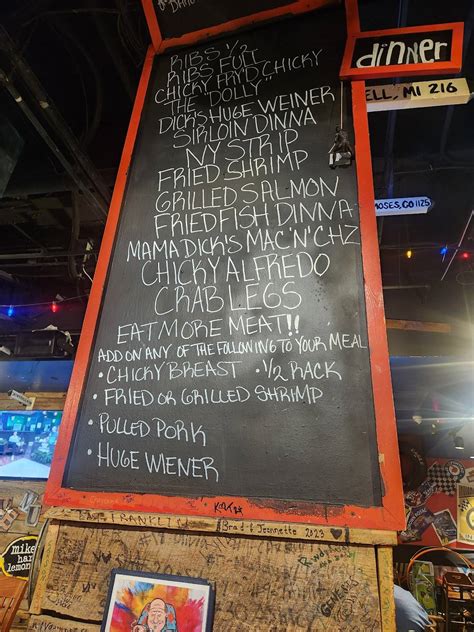 dinner
ELL, MI 216
MOSES, CO 1125
RIBS 1/2
RIBS FULL
CHICKY FRY'D CHICKY
THE "DOLLY"
DICK'S HUGE WEINER
SIRLOIN DINNA
NY STRIP
FRIED SHRIMP
GRILLED SALMON
FRIED FISH DINNA
MAMA DICK'S MAC 'N' CHZ
CHICKY ALFREDO
CRAB LEGS
EAT MORE MEAT!!
ADD ON ANY OF THE FOLLOWING TO YOUR MEAL
• CHICKY BREAST • 1/2 RACK
• FRIED OR GRILLED SHRIMP
• PULLED PORK
• HUGE WIENER
FRANKLI
Brad & Jeannette 2023
mike
har
lemon